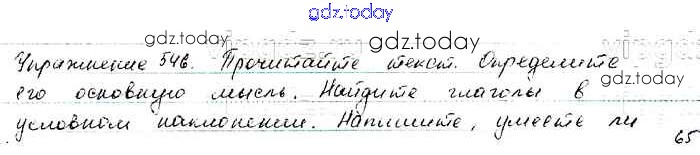 gdz.today
Упражнение 546. Прочитайте текст. Определите
gdz.today
gdz.today
его основную мысль. Найдите глаголы в
gdz.today
условном наклонении. Напишите, умеете ли
65